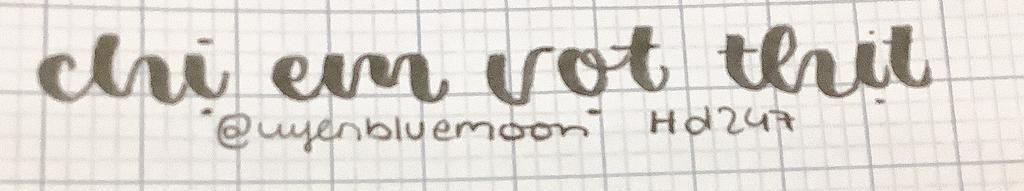 chị em vọt thịt
@uyenbluemoon Hd247